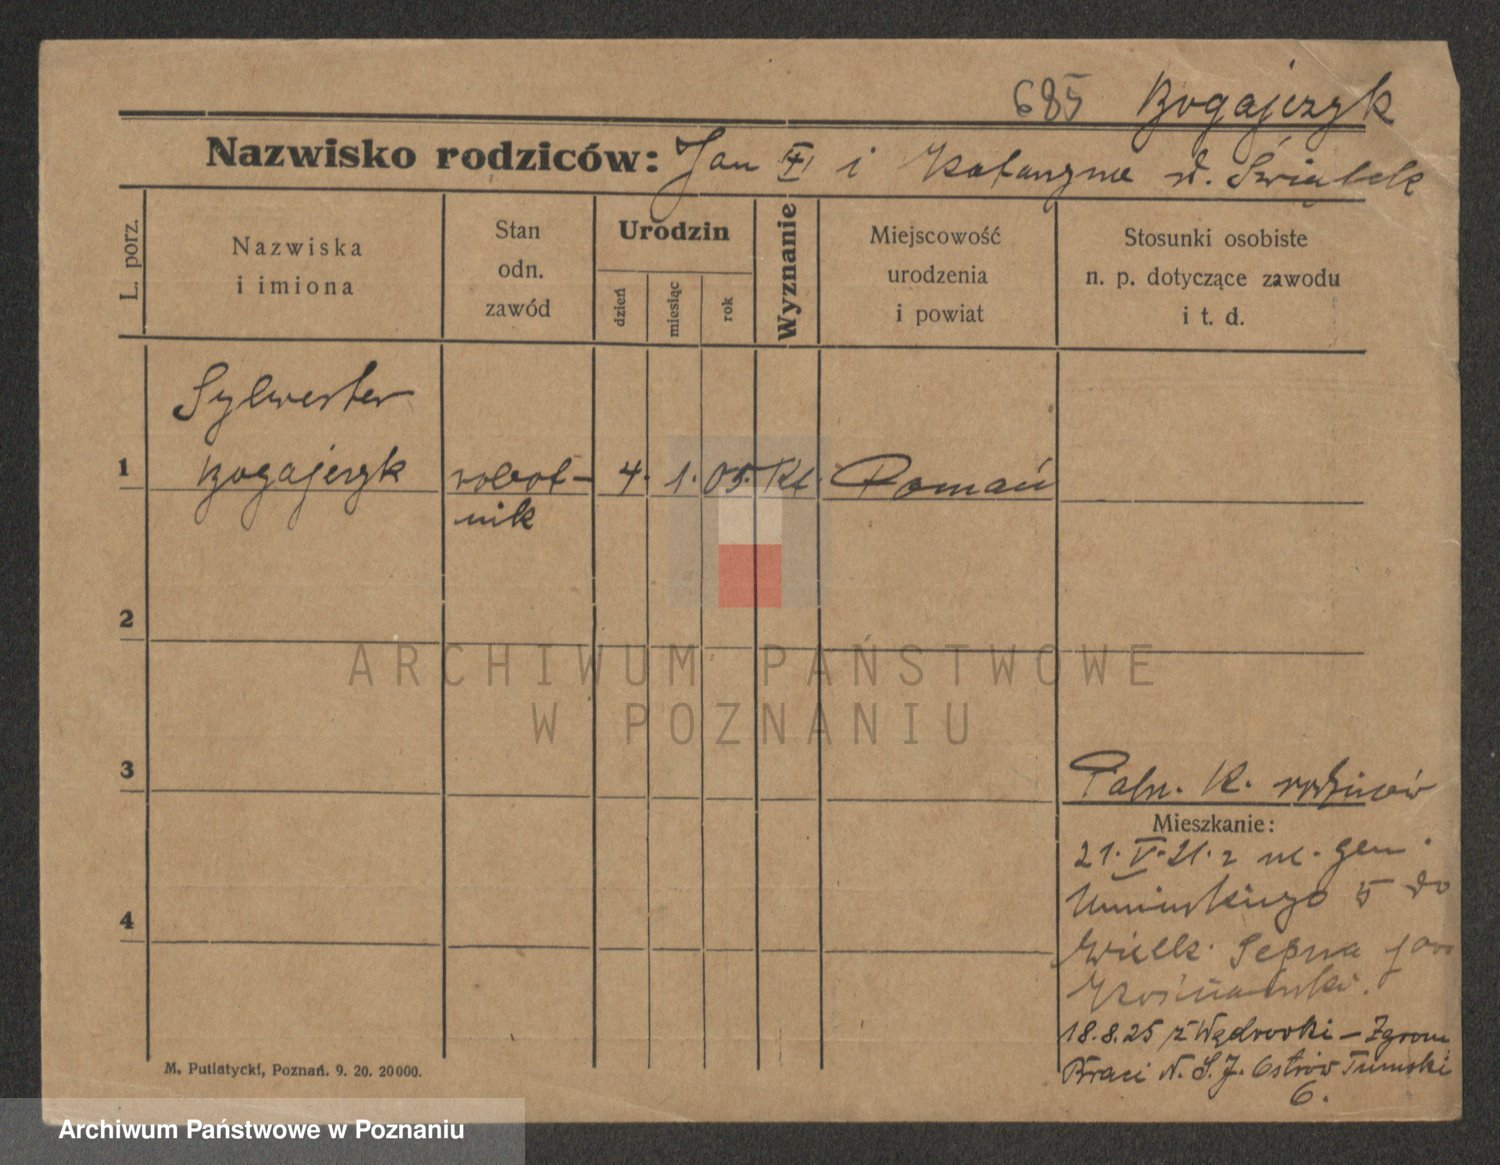 685 Bogajczyk
Nazwisko rodziców: Jan i Katarzyna d. Świątek
L. porz.
Nazwiska
i imiona
Stan
odn.
zawód
Urodzin
dzień
miesiąc
rok
Wyznanie
Miejscowość
urodzenia
i powiat
Stosunki osobiste
n. p. dotyczące zawodu
i t. d.
Sylwester
1 Bogajczyk robot- 4. 1. 05. Kt. Poznań
nik
2
ARCHIWUM PAŃSTWOWE
W POZNANIU
3
Patrz. K. rodziców
Mieszkanie:
21. V. 21. z ul. gen.
Umińskiego 5 do
4
Wielk. pow
18.8.25 z Wędrówki – Zgrom
Braci N. S. J. Ostrów Tumski
6.
M. Putiatycki, Poznań. 9. 20. 20000.
Archiwum Państwowe w Poznaniu